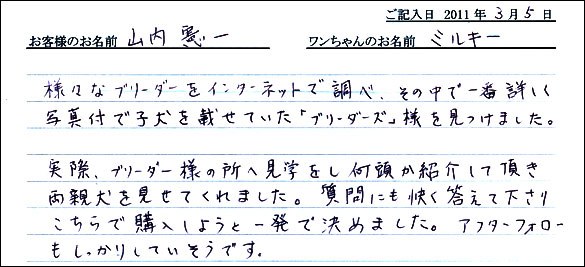 ご記入日 2011年 3月 5日
お客様のお名前 山内 憲一 ワンちゃんのお名前 ミルキー
様々なブリーダーをインターネットで調べ、その中で一番詳しく
写真付で子犬を載せていた「ブリーダーズ」様を見つけました。
実際、ブリーダー様の所へ見学をし何頭か紹介して頂き
両親犬を見せてくれました。質問にも快く答えて下さり
こちらで購入しようと一発で決めました。アフターフォロー
もしっかりしていそうです。